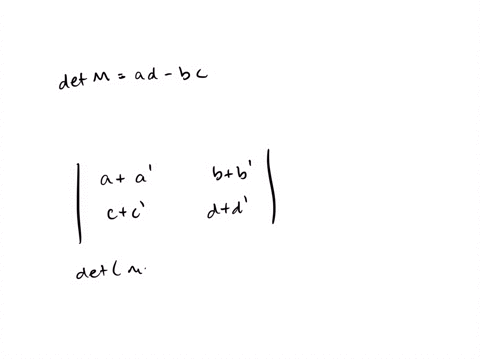 det M = ad - bc
| a + a' b+b' |
| c+c' d+d' |
det( M